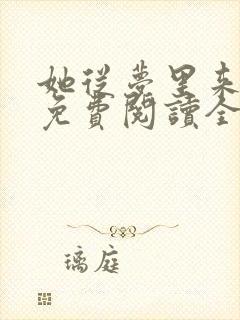 她從夢里來
免費閱讀全
璃庭